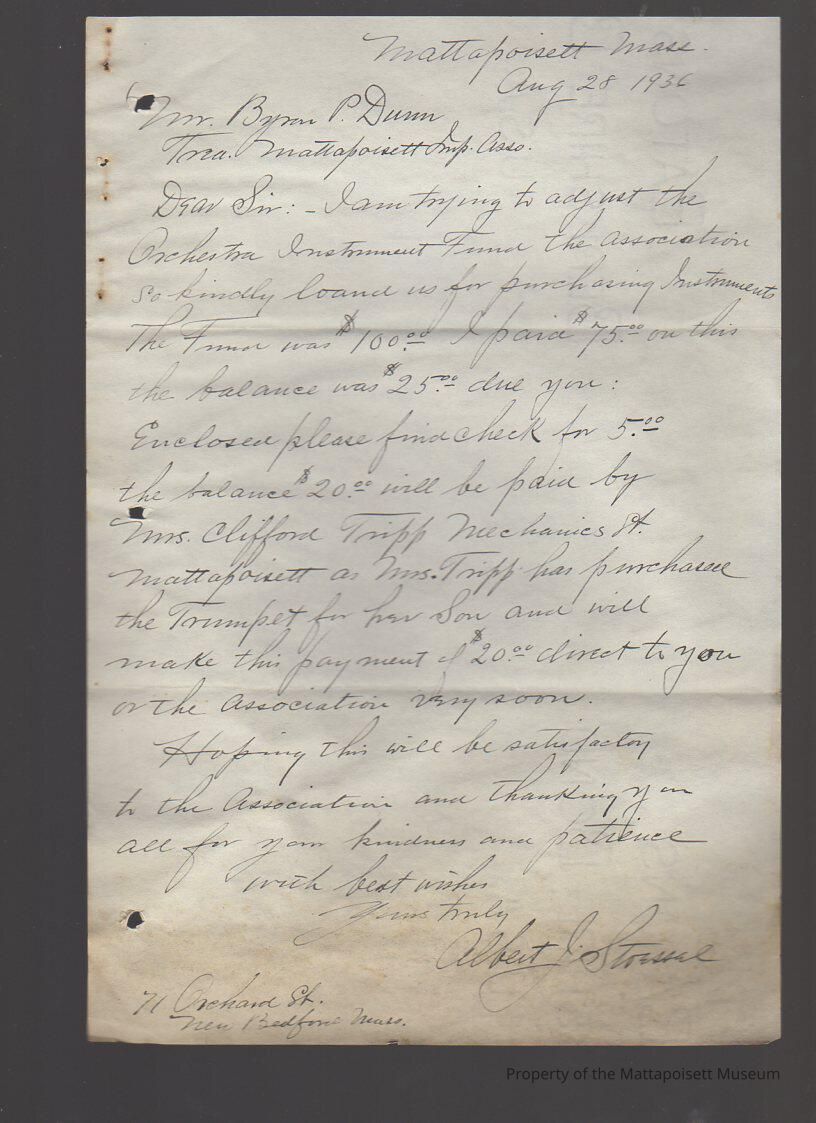 Mattapoisett Mass.
Aug 28 1936
Mr. Byron P. Dunn
Trea. Mattapoisett Imp. Asso.
Dear Sir: - I am trying to adjust the
Orchestra Instrument Fund the Association
so kindly loand us for purchasing Instruments
The Fund was $100.00 I paid $75.00 on this
the balance was $25.00 due you:
Enclosed please find check for 5.00
the balance $20.00 will be paid by
Mrs. Clifford Tripp Mechanics St.
Mattapoisett as Mrs. Tripp has purchased
the Trumpet for her Son and will
make this payment of $20.00 direct to you
or the Association very soon.
Hoping this will be satisfactory
to the Association and thanking you
all for your kindness and patience
with best wishes
Yours truly
Albert J. Stoessel
71 Orchard St.
New Bedford Mass.
Property of the Mattapoisett Museum